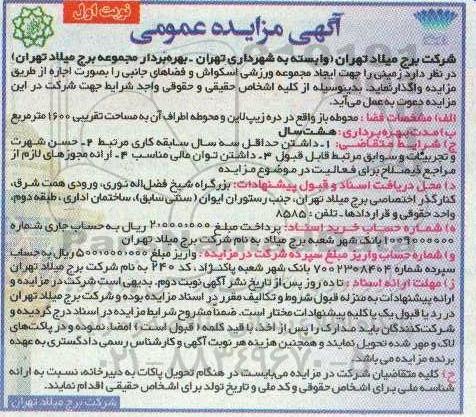 نوبت اول
آگهی مزایده عمومی
شرکت برج میلاد تهران (وابسته به شهرداری تهران ـ بهره‌بردار مجموعه برج میلاد تهران)
در نظر دارد زمینی را جهت ایجاد مجموعه ورزشی اسکواش و فضاهای جانبی را بصورت اجاره از طریق
مزایده واگذار نماید. بدینوسیله از کلیه اشخاص حقیقی و حقوقی واجد شرایط جهت شرکت در این
مزایده دعوت به عمل می‌آید.
الف) مشخصات فضا : محوطه باز واقع در دره زیپ لاین و محوطه اطراف آن به مساحت تقریبی ۱۶۰۰ مترمربع
ب) مدت بهره‌برداری: هشت سال
ج) شرایط متقاضی: ۱ـ داشتن حداقل سه سال سابقه کاری مرتبط ۲ـ حسن شهرت
و تجربیات و سوابق مرتبط قابل قبول ۳ـ داشتن توان مالی مناسب ۴ـ ارائه مجوزهای لازم از
مراجع ذیصلاح برای فعالیت در موضوع مزایده
د) محل دریافت اسناد و قبول پیشنهادات: بزرگراه شیخ فضل‌اله نوری، ورودی همت شرق،
کنارگذر اختصاصی برج میلاد تهران، جنب رستوران ایوان (سنتی سابق)، ساختمان اداری، طبقه دوم،
واحد حقوقی و قراردادها ـ تلفن : ۸۵۸۵
ه) شماره حساب خرید اسناد: پرداخت مبلغ ۲۰۰۰۰۰۰ ریال به حساب جاری شماره
بانک شهر شعبه برج میلاد به نام شرکت برج میلاد تهران
و) شماره حساب واریز مبلغ سپرده شرکت در مزایده : واریز مبلغ ریال به حساب
سپرده شماره ۷۰۰۲۳۰۸۴۰۴ بانک شهر شعبه پاکنژاد، کد ۲۴۰ به نام شرکت برج میلاد تهران
ز) مهلت ارائه اسناد : تا ده روز پس از تاریخ نشر آگهی نوبت دوم. بدیهی است شرکت در مزایده و
ارائه پیشنهادات به منزله قبول شروط و تکالیف مقرر در اسناد مزایده بوده و شرکت برج میلاد تهران
در رد یا قبول یک یا کلیه پیشنهادات مختار است. ضمناً مشروح شرایط مزایده در اسناد درج گردیده و
شرکت‌کنندگان باید مدارک را پس از اخذ با قید کلمه ( قبول است ) امضار نموده و در پاکت‌های
لاک و مهر شده تحویل نمایند و همچنین هزینه هر نوبت آگهی و کارشناس رسمی دادگستری به عهده
برنده مزایده می‌باشد.
ح) کلیه متقاضیان شرکت در مزایده می‌بایست در هنگام تحویل پاکات به دبیرخانه، نسبت به ارائه
شناسه ملی برای اشخاص حقوقی و کد ملی و تاریخ تولد برای اشخاص حقیقی اقدام نمایند.
شرکت برج میلاد تهران